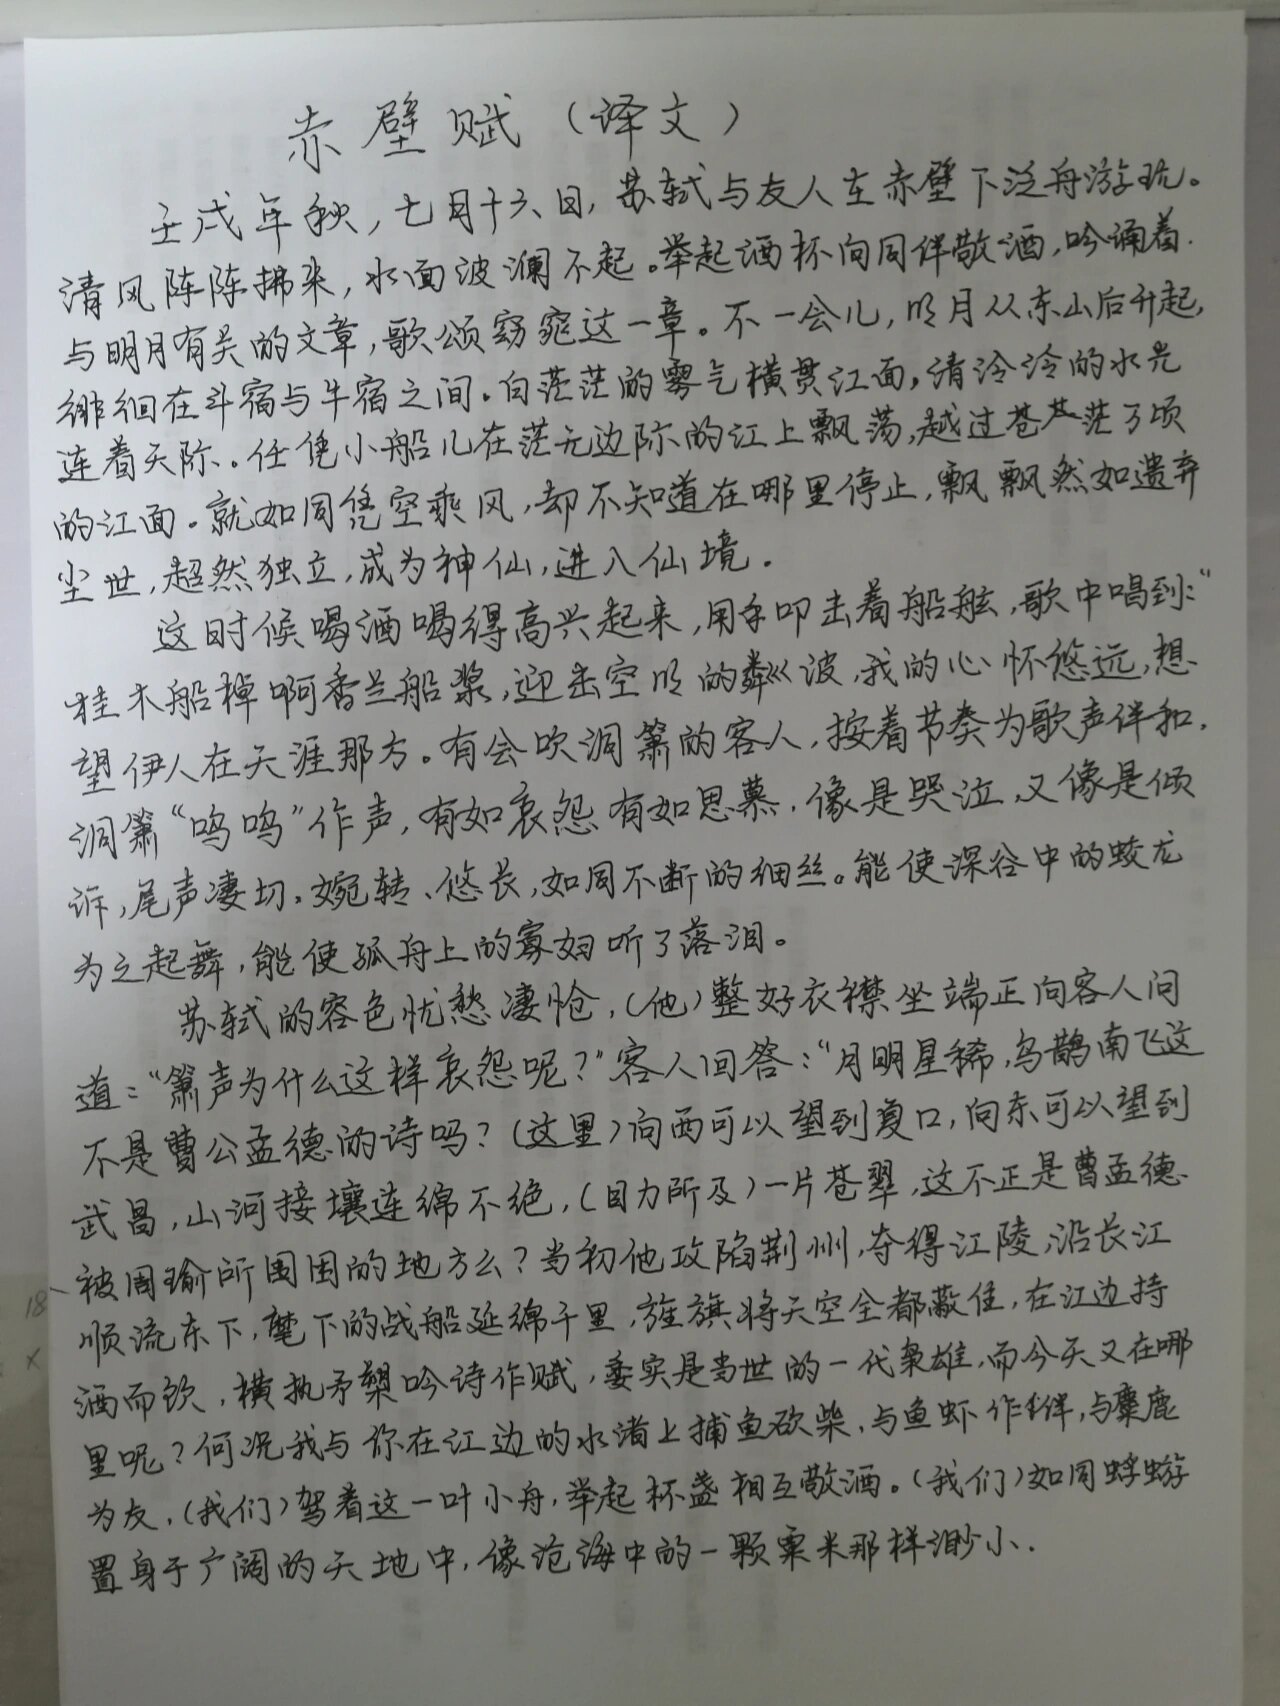 赤壁赋（译文）
壬戌年秋，七月十六日，苏轼与友人在赤壁下泛舟游玩。
清风阵阵拂来，水面波澜不起。举起酒杯向同伴敬酒，吟诵着
与明月有关的文章，歌颂窈窕这一章。不一会儿，明月从东山后升起，
徘徊在斗宿与牛宿之间。白茫茫的雾气横贯江面，清泠泠的水光
连着天际。任凭小船儿在茫无边际的江上飘荡，越过苍茫万顷
的江面。就如同凭空乘风，却不知道在哪里停止，飘飘然如遗弃
尘世，超然独立，成为神仙，进入仙境。
这时候喝酒喝得高兴起来，用手叩击着船舷，歌中唱到：“
桂木船棹啊香兰船桨，迎击空明的粼波，我的心怀悠远，想
望伊人在天涯那方。有会吹洞箫的客人，按着节奏为歌声伴和，
洞箫“呜呜”作声，有如哀怨有如思慕，像是哭泣，又像是倾
诉，尾声凄切，婉转、悠长，如同不断的细丝。能使深谷中的蛟龙
为之起舞，能使孤舟上的寡妇听了落泪。
苏轼的容色忧愁凄怆，（他）整好衣襟坐端正向客人问
道：“箫声为什么这样哀怨呢？”客人回答：“月明星稀，乌鹊南飞这
不是曹公孟德的诗吗？（这里）向西可以望到夏口，向东可以望到
武昌，山河接壤连绵不绝，（目力所及）一片苍翠，这不正是曹孟德
被周瑜所围困的地方么？当初他攻陷荆州，夺得江陵，沿长江
顺流东下，麾下的战船延绵千里，旌旗将天空全都蔽住，在江边持
酒而饮，横执矛槊吟诗作赋，委实是当世的一代枭雄，而今天又在哪
里呢？何况我与你在江边的水渚上捕鱼砍柴，与鱼虾作伴，与麋鹿
为友，（我们）驾着这一叶小舟，举起杯盏相互敬酒。（我们）如同蜉蝣
置身于广阔的天地中，像沧海中的一颗粟米那样渺小.
18
x